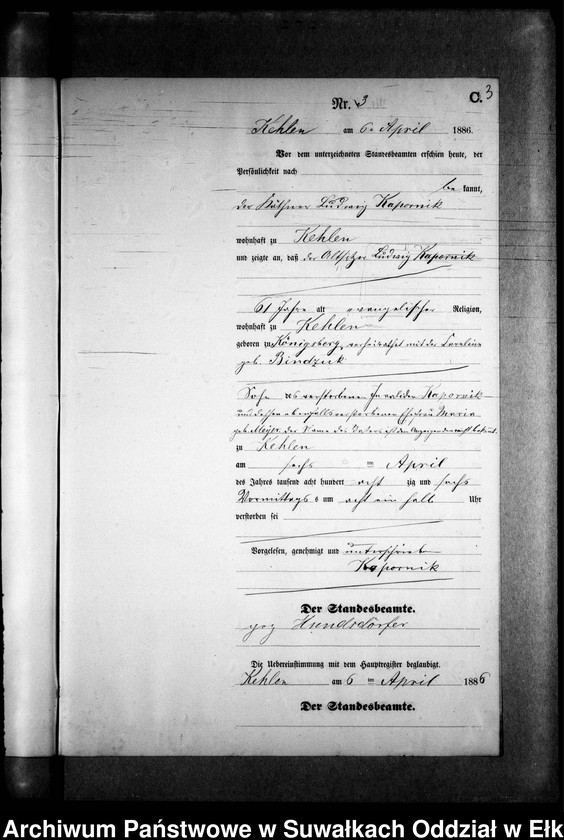 3
Nr. 3 C.
Kehlen am 6ten April 1886.
Vor dem unterzeichneten Standesbeamten erschien heute, der
Persönlichkeit nach
be kannt,
der Käthner Ludwig Kapornik
wohnhaft zu Kehlen
und zeigte an, daß der Altsitzer Ludwig Kapornik
61 Jahre alt evangelischer Religion,
wohnhaft zu Kehlen
geboren zu Königsberg, verheirathet mit der Caroline
geb. Bindzuk
Sohn des verstorbenen Invaliden Kapornik
und dessen ebenfalls verstorbenen Ehefrau Maria
geb. Meyer, der Name des Vaters ist dem Anzeigenden nicht bekannt.
zu Kehlen
am sechs ten April
des Jahres tausend acht hundert acht zig und sechs
Vormittags s um acht ein halb Uhr
verstorben sei
Vorgelesen, genehmigt und unterschrieben
Kapornik
Der Standesbeamte.
gez Hundsdörfer
Die Uebereinstimmung mit dem Hauptregister beglaubigt.
Kehlen am 6 ten April 1886
Der Standesbeamte.
Archiwum Państwowe w Suwałkach Oddział w Ełk